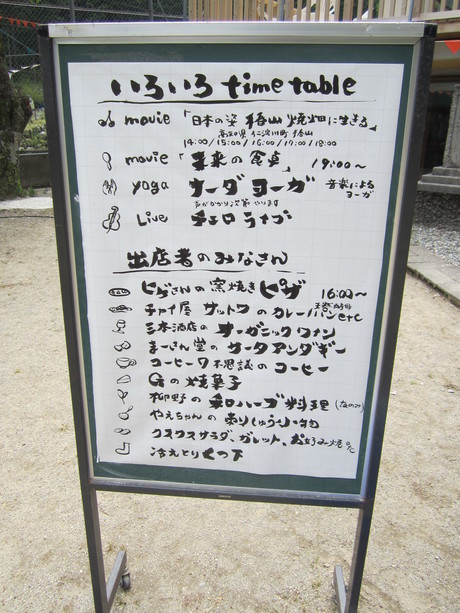 いろいろ time table
movie 「日本の姿 椿山 焼畑に生きる」
高知県 仁淀川町 椿山
14:00/15:00/16:00/17:00/18:00
movie 「未来の食卓」 19:00〜
yoga ナーダ ヨーガ 音楽によるヨーガ
声がかかり次第やります
Live チェロ ライブ
出店者のみなさん
ヒゲさんの窯焼きピザ 16:00〜
チャイ屋 サットワ の カレーパン etc
三本酒店の オーガニックワイン
まーさん堂の サータアンダギー
コーヒーワ不思議の コーヒー
Gの焼菓子
柳野の 和ハーブ料理
やえちゃんの
クスクスサラダ、ガレット、お好み焼
冷えとりくつ下